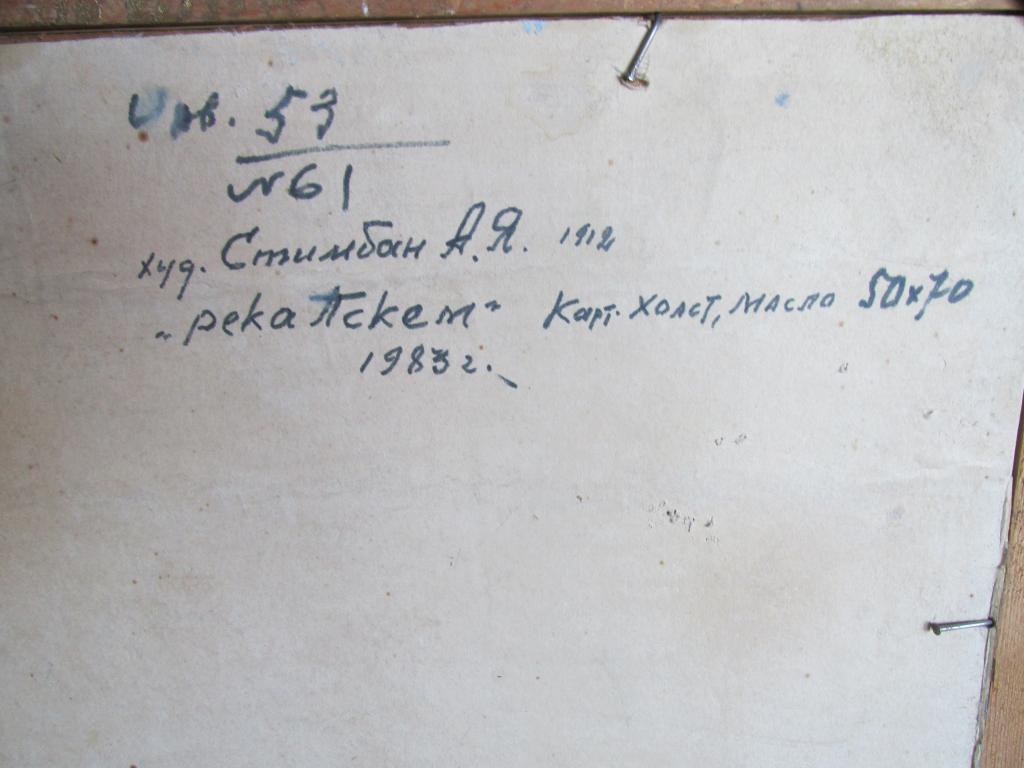 Инв. 53
№61
худ. Стимбан А.Я. 1912
„река Пскем" Карт. Холст, масло 50х70
1983 г.